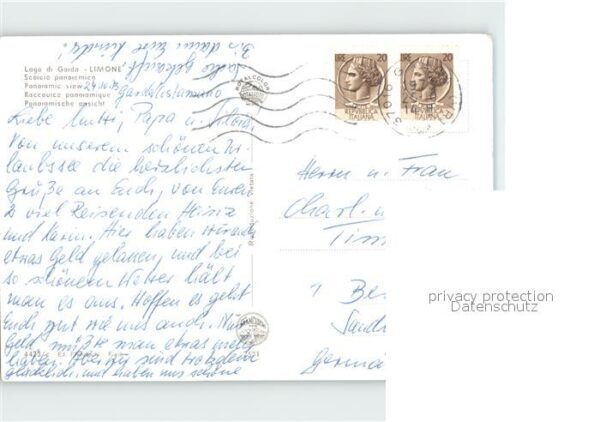 Bis dann Eure Kinder!
Lago di Garda - LIMONE
Scorcio panoramico
Panoramic view
Raccourci panoramique
Panoramische ansicht
Liebe Mutti, Papa u.
Von unserem schönen Ur-
laubssee die herzlichsten
Grüße an Euch, von Euren
2 viel Reisenden Heinz
und Karin. Hier haben wir auch
etwas Geld gelassen, und bei
so schönem Wetter hält
man es aus. Hoffen es geht
Euch gut wie uns auch. Nur
Geld müßte man etwas mehr
haben. Aber wir sind trotzdem
glücklich, und haben uns schöne
20
REPUBBLICA
ITALIANA
20
REPUBBLICA
ITALIANA
Herrn u. Frau
Charl
Tim
1 Be
Sand
Germa
privacy protection
Datenschutz